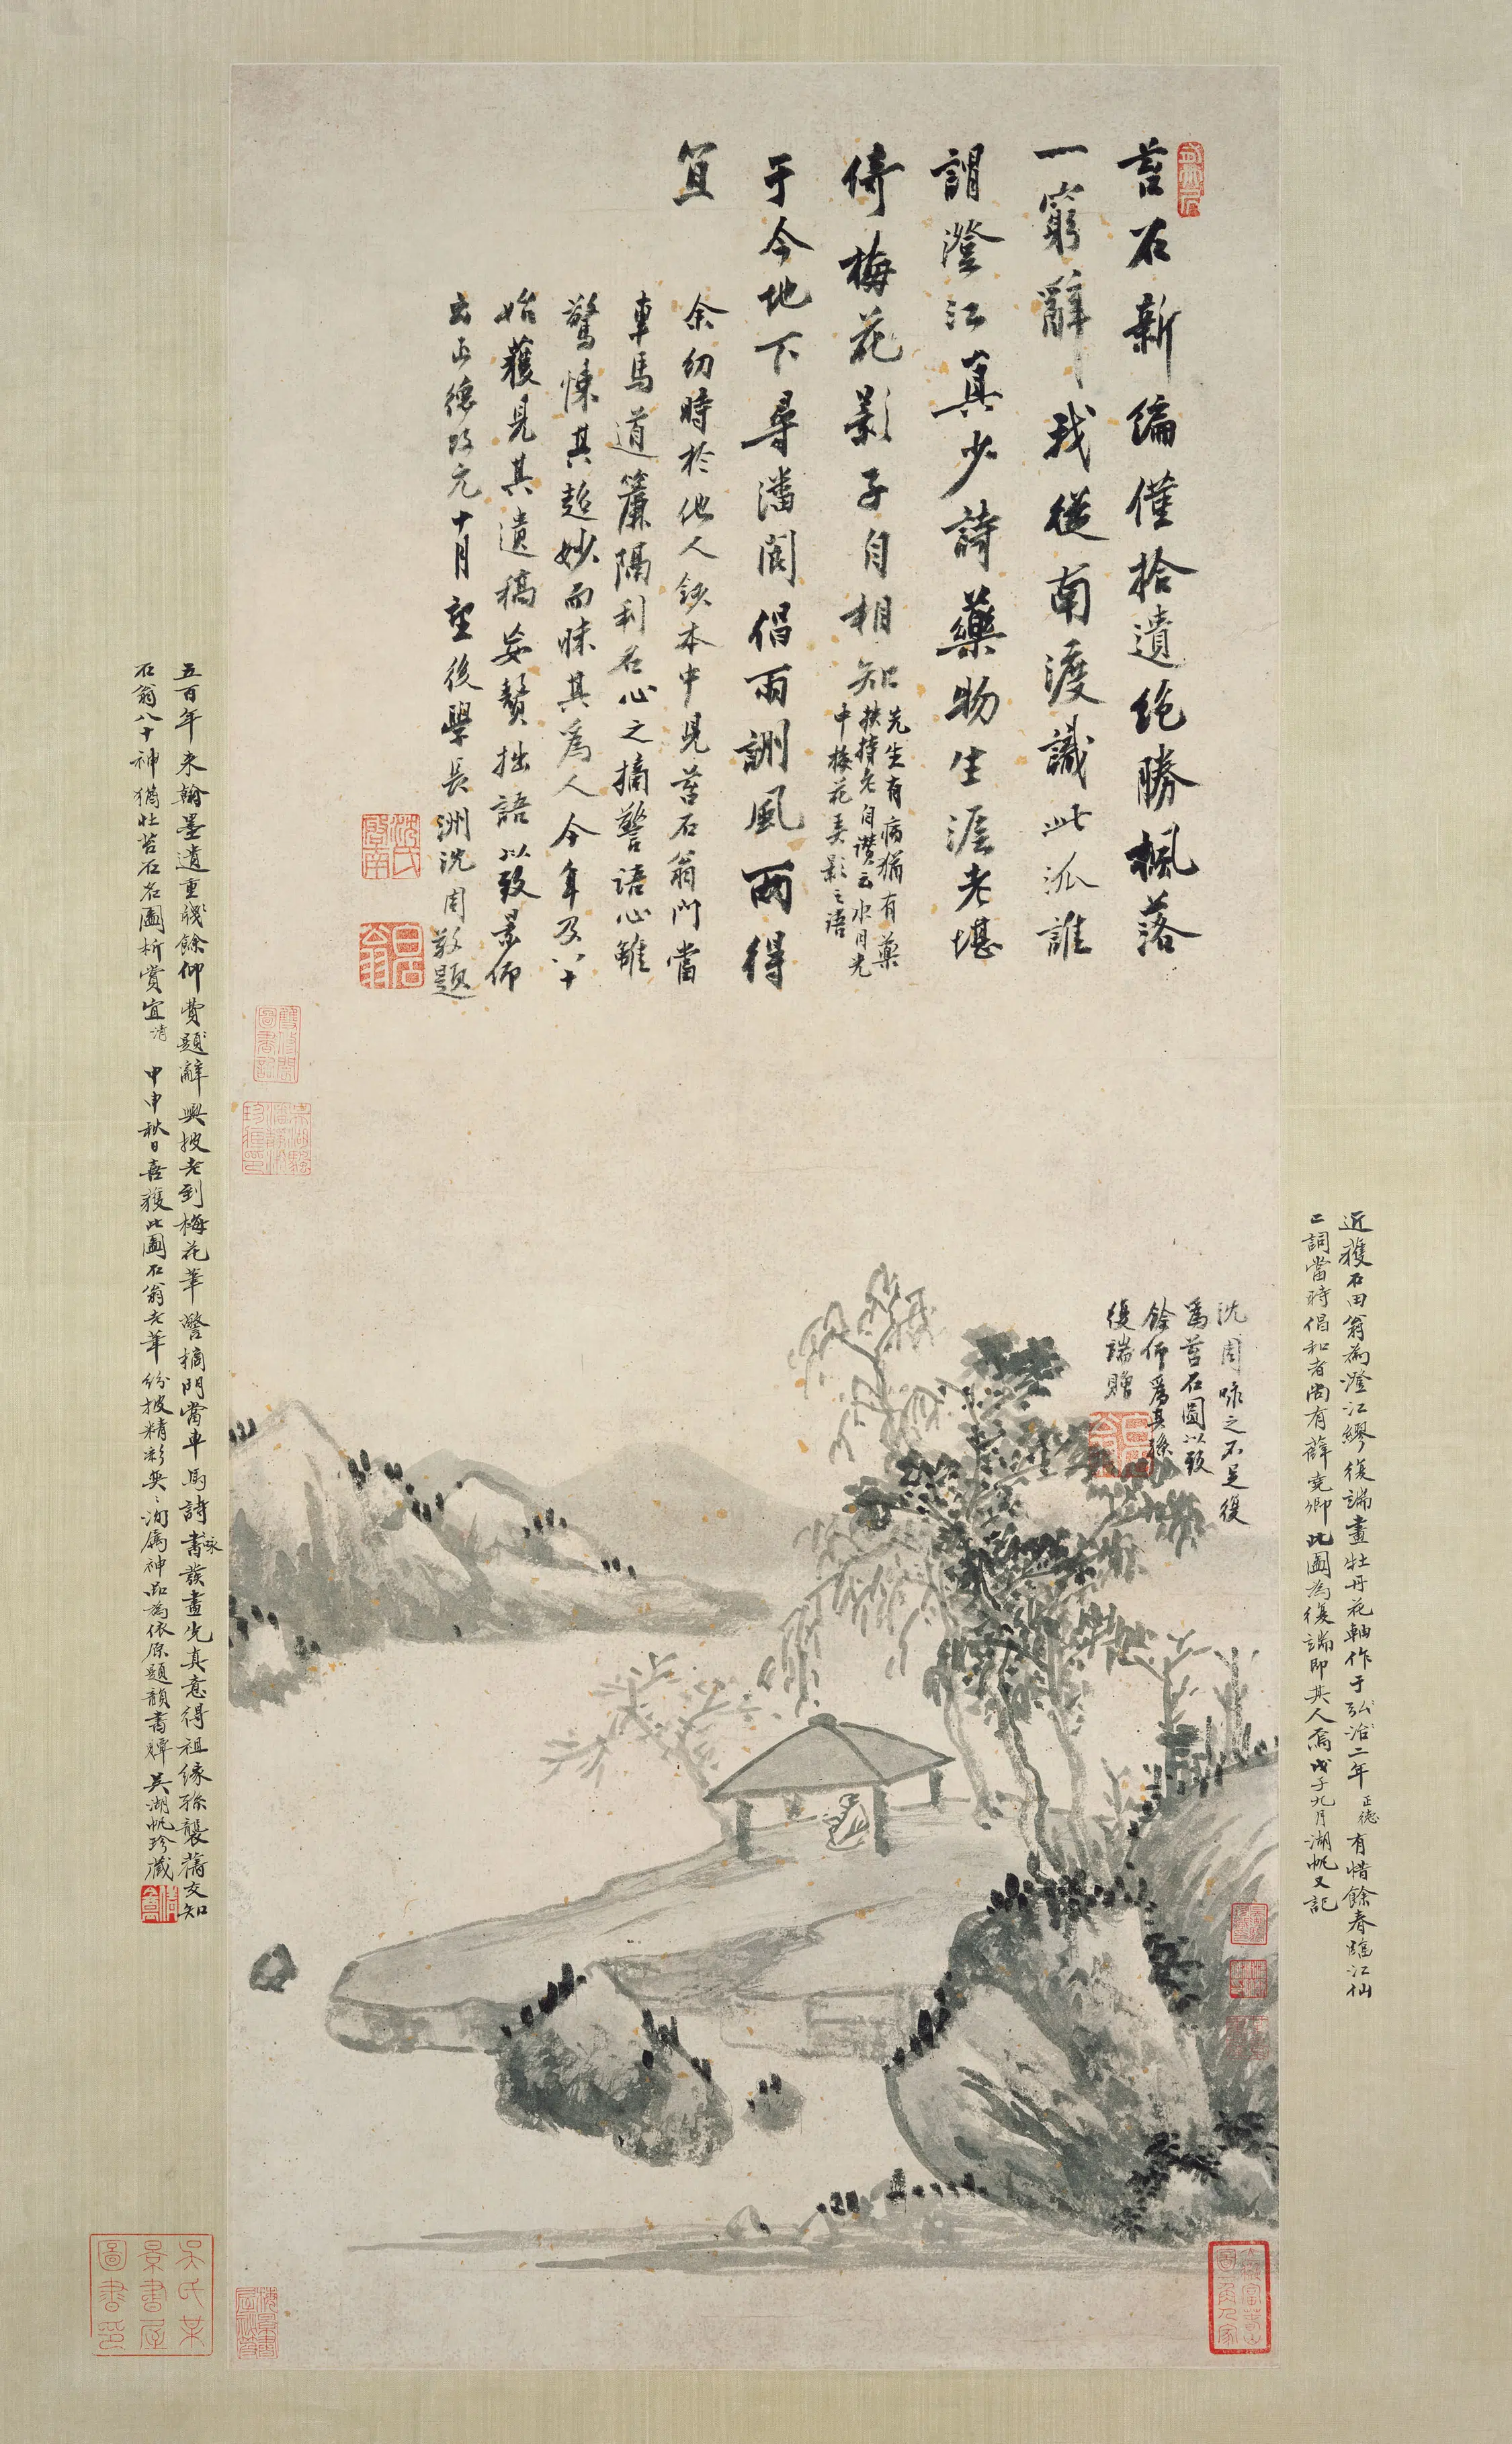 苔石新編僅拾遺絶勝楓落
一窮辭我從南渡識此派誰
謂澄江真少詩藥物生涯老堪
倚梅花影子自相知
先生有病猶有藥
扶持老自讚云水月光
中梅花弄影之語
于今地下尋潘閬倡雨詶風兩得
宜
余幼時於他人鈔本中見苔石翁門當
車馬道簾隔利名心之摘警語心雖
驚悚其超妙而昧其爲人今年及八十
始獲見其遺稿妄贅拙語以致景仰
云正德改元十月望後學長洲沈周敬題
沈氏啓南
白石翁
沈周咏之不足復
爲苔石圖以致
餘仰爲其孫
復端贈
近獲石田翁為澄江繆復端畫牡丹花軸作于弘治二年正德有惜餘春臨江仙
二詞當時倡和者尚有薛堯卿此圖為復端即其人焉戊子九月湖帆又記
五百年来翰墨遺重牋餘仰費題辭興披老到梅花筆警摘門當車馬詩書發畫先真意得祖緣孫襲舊交知
咏
石翁八十神猶壯苔石名圖析賞宜 清 甲申秋日喜獲此圖石翁老筆紛披精彩奕奕洵属神品為依原題韻書禪 吳湖帆珍藏
吳氏某
景書屋
圖書印
梅景書屋祕笈